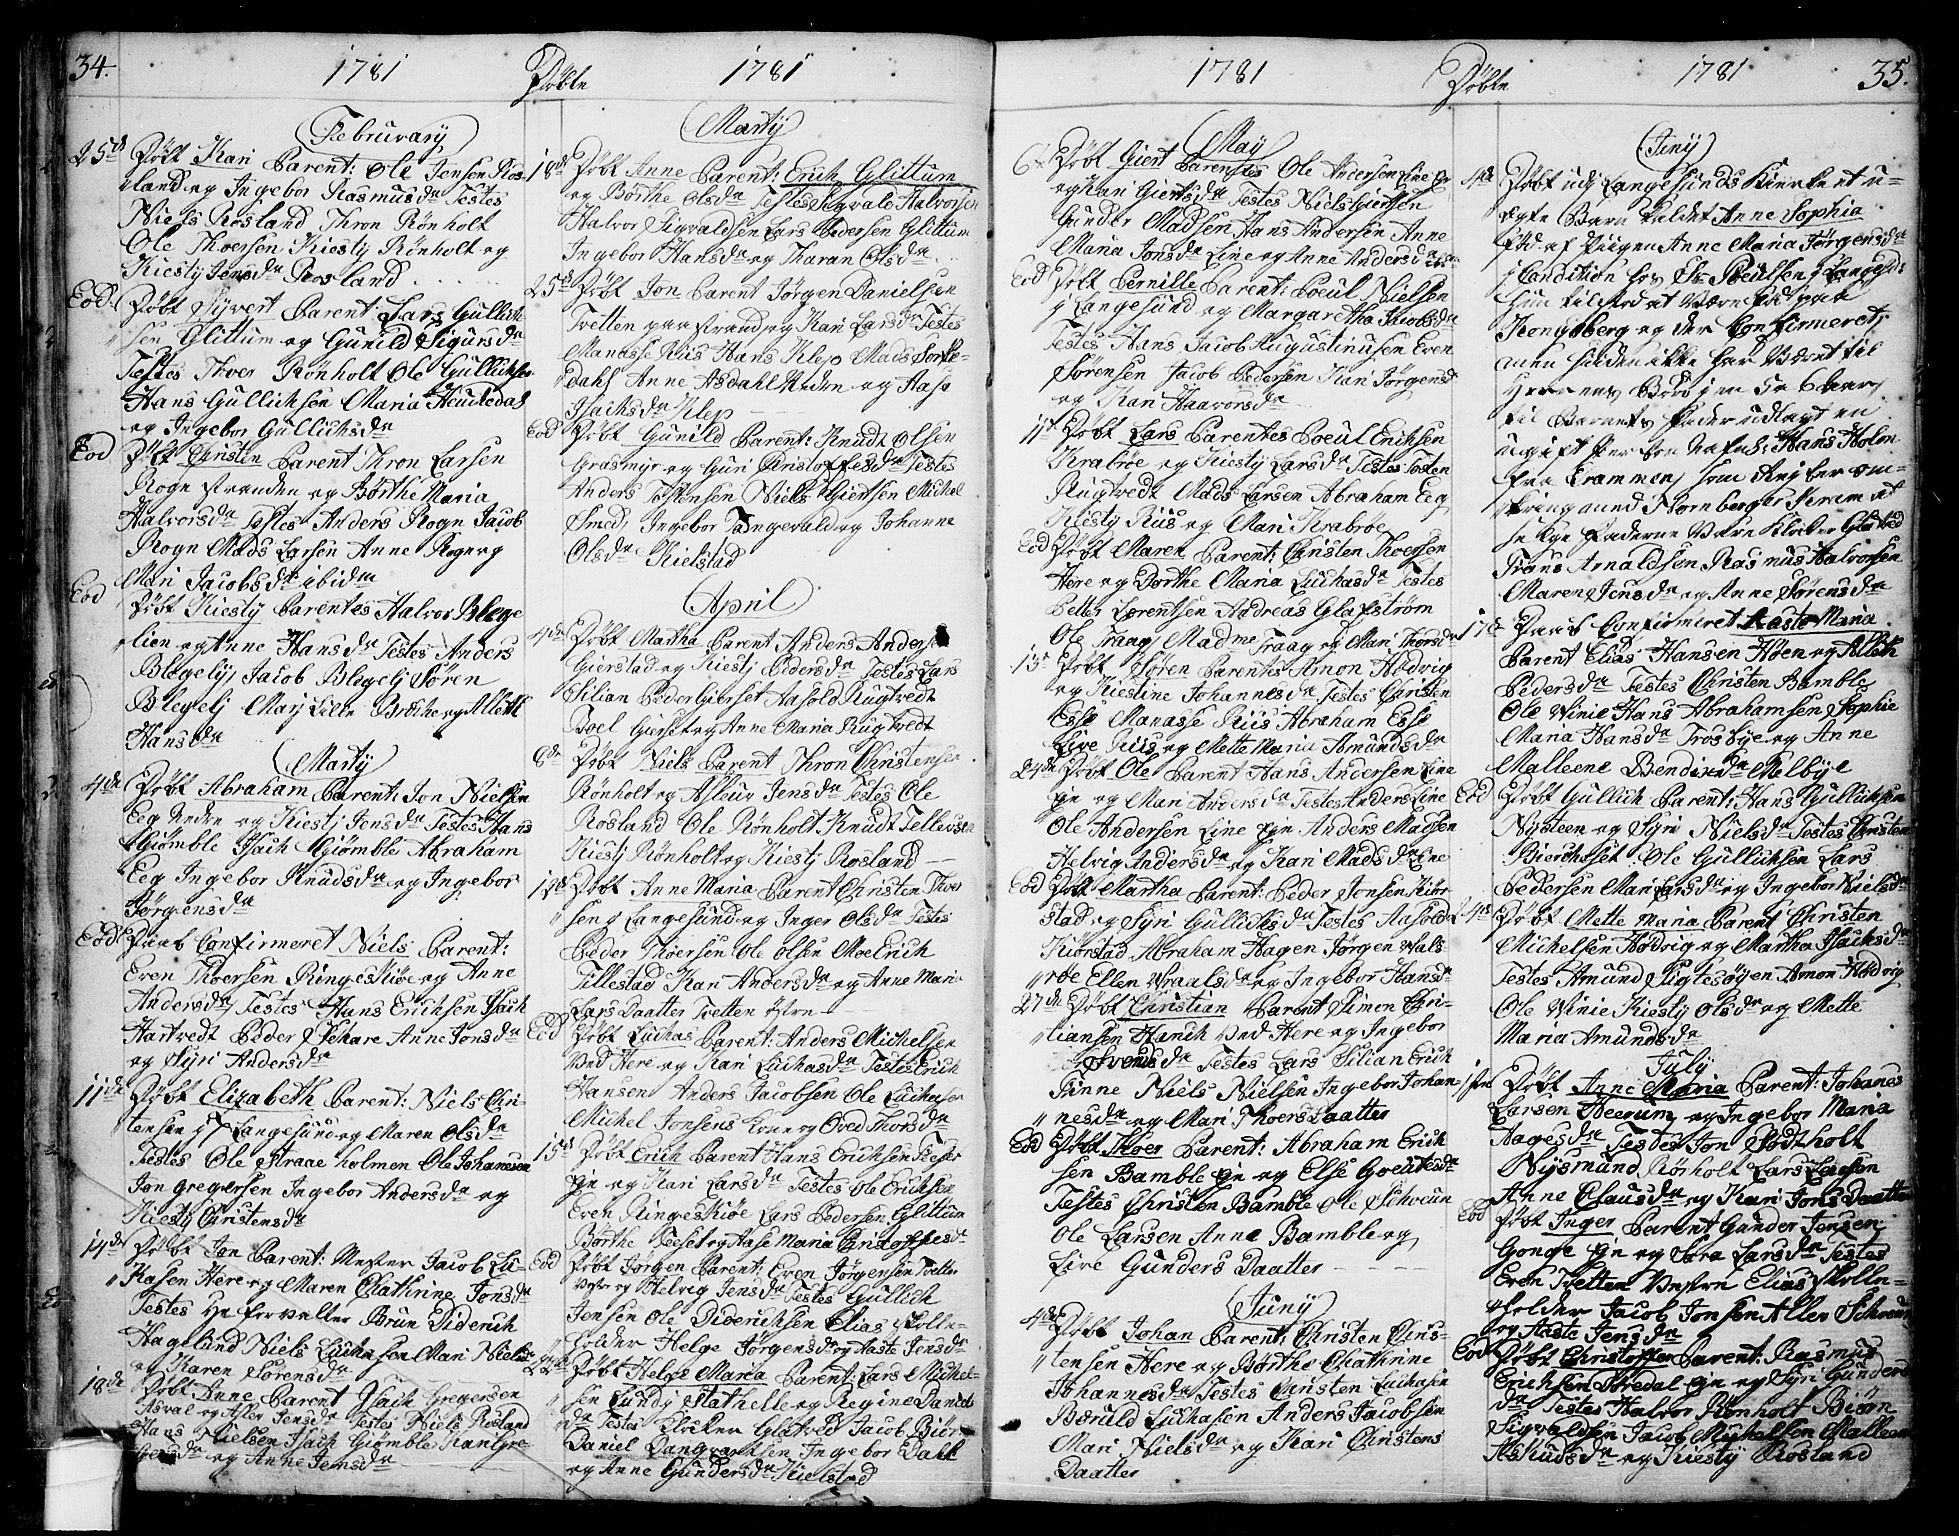 34.
1781
Döbte
1781
Februarij
25de Döbt Kari Parent: Ole Jensen Ros-
land og Ingebor Rasmusdr Testes
Niels Rosland Thron Rönholt
Ole Thoersen Kiestj Rönholt og
Kiestj Jensdr Rosland
Eod. Döbt Sijvert Parent Lars Gullich
sen Glittum og Gunild Sigursdr
Testes Thoer Rönholt Ole Gullichsen
Hans Gullichsen Maria Heukedal
og Ingebor Gullichsdr
Eod Döbt Christen Parent Thron Larsen
Rogn stranden og Börthe Maria
Halvorsdr Testes Anders Rogn Jacob
Rogn Mads Larsen Anne Rogn og
Mari Jacobsdr ibidm
Eod Döbt Kiestj Parentes Halvor Blege
lien og Anne Hansdr Testes Anders
Blegelij Jacob Blegelj Sören
Blegelj Marj Lille og Alleth
Hansdr
Martij
4de Döbt Abraham Parent: Jon Nielsen
Eeg Nedre og Kiestj Jensdr Testes Hans
Giömble Isach Giömble Abraham
Eeg Ingebor Knudsdr og Ingebor
Jörgensdr
Eod Daab Confirmeret Niels Parent:
Even Thoersen Ringeskiöe og Anne
Andersdr Testes Hans Erichsen Isach
Hartvedt Peder Anne Jonsdr
og Siri Andersdr
11de Döbt Elizabeth Parent: Niels Chri-
stensen i Langesund og Maren Olsdr
Testes Ole Straae holmen Ole Johansen
Jon Gregersen Ingebor Andersdr og
Kiestj Christensdr
14de Döbt Jon Parent: Mester Jacob Lu-
kasen Herre og Maren Chathrine Jonsdr
Testes Hr Forvalter Brün Diderich
Hagelund Niels Luchasen Mari Nielsdr
og Karen Sörensdr
18de Döbt Anne Parent Isach Gregersen
Asval og Assler Jensdr Testes Niels Rosland
Hans Nielsen Isach Giömble Kari Gre-
gersdr og Anne Jensdr
Martij
18de Döbt Anne Parent: Erich Glittum
og Börthe Olsdr Testes Sigvald Halvorsen
Halvor Sigvaldsen Lars Pedersen Glittum
Ingebor Hansdr og Tharan Olsdr
25de Döbt Jon Parent Jörgen Danielsen
Tvetten paa strand og Kari Larsdr Testes
Manasse Riis Hans Klep Mads Torste-
dahl Anne Asdahl Nedre og Aase
Isachsdr Klep
Eod Döbt Gunild Parent: Knudt Olsen
Grasmyr og Guri Christoffersdr Testes
Anders Tostensen Niels Giertsen Michel
Smed Ingebor Tangevald og Johanne
Olsdr Kielstad
April
4de Döbt Martha Parent Anders Andersen
Gierstad og Kiestj Pedersdr Testes Lars
Silian Peder Gierset Aasold Rugtvedt
Boel Gierset og Anne Maria Rugtvedt
8de Döbt Niels Parent Thron Christensen
Rönholt og Asleur Jensdr Testes Ole
Rosland Ole Rönholt Knudt Tellevsen
Kiestj Rönholt og Kiestj Rosland
Döbt Anne Maria Parent Christen Thoer
sen i Langesund og Inger Olsdr Testes
Peder Thoersen Ole Olsen Moe Erich
Tillestad Kari Andersdr og Anne Mari
Lars Daatter Tvetten östre
Eod Döbt Luchas Parent: Anders Michelsen
Ved Herre og Kari Luchasdr Testes Erich
Hansen Anders Jacobsen Ole Luchasen
Michel Jonsens Kone og Oved Thorsdr
15de Döbt Erich Parent Hans Erichsen Feset
Eje og Kari Larsdr Testes Ole Erichsen
Even Ringeskiöe Lars Pedersen Glittum
Börthe Feset og Aase Maria Christoffersdr
Eod Döbt Jörgen Parent: Even Jörgensen Tvetten
Vestre og Helvig Jensdr Testes Gullich
Jensen Ole Diderichsen Elias Skolle-
bolden Helge Jörgensdr og Aaste Jensdr
22de Döbt Helge Maria Parent: Lars Michel-
sen Lundj Stathelle og Regine Daniels
dr Testes Klocker Glatved Jacob Biörn
Daniel Ingebor Dahl
og Anne Gundersdr Kielstad
1781
Döbte
1781
35.
May
6te Döbt Giert Parentes Ole Andersen Line Eje
og Kari Giertsdr Testes Niels Giertsen
Gunder Madsen Hans Andersen Anne
Maria Jonsdr Line og Anne Andersdr
Eod Döbt Pernille Parent: Poeul Nielsen
i Langesund og Margaretha Jacobsdr
Testes Hans Jacob Augustinusen Even
Sörensen Jacob Pedersen Kari Jörgensd
og Kari Haavorsdr
11te Döbt Lars Parentes Poeul Erichsen
Krabröe og Kiestj Larsdr Testes Tosten
Rugtvedt Mads Larsen Abraham Eeg
Kiestj Riis og Mari Krabröe
Eod Döbt Maren Parent: Christen Thoersen
Herre og Dorthe Maria Luchasdr Testes
Petter Lorentsen Andreas Glafström
Ole Traag Madme Traag og Mari Thorsdr
13de Döbt Sören Parentes Amon Hödvig
og Kiestine Johannesdr Testes Christen
Esse Manasse Riis Abraham Esse
Live Riis og Mette Maria Amundsdr
24de Döbt Ole Parent Hans Andersen Line
Eje og Mari Andersdr Testes Anders Line
Ole Andersen Line Eje Anders Madsen
Helvig Andersdr og Kari Madsdr Line
Eod Döbt Martha Parent: Peder Jonsen Kiör
stad og Siri Gullichsdr Testes Aasold
Kiörstad Abraham Hagen Jörgen Vals
Ellen Vraalsdr og Ingebor Hansdr
27de Döbt Christian Parent Simon Chri-
stiansen Hanch Ved Herre og Ingebor
Svendsdr Testes Lars Silian Erich
Finne Niels Nielsen Ingebor Johan-
nesdr og Mari Thoers Daatter
Eod Döbt Thoer Parent: Abraham Erich
sen Bamble Eje og Else Goeutesdr
Testes Christen Bamble Ole Schoeun
Ole Larsen Anne Bamble og
Live Gunders Daatter
Junij
4de Döbt Johan Parent: Christen Chris-
tensen Herre og Börthe Chathrine
Johannesdr Testes Christen Luchasen
Bæruld Luchasen Anders Jacobsen
Mari Nielsdr og Kari Christens
Daatter
Junij
4de Döbt udj Langesunds Kierke et u-
egte Barn Kaldet Anne Sophia
föd af Pigen Anne Maria Jörgensdr
i Condition hos Poeulsen i Langesund
hun til stod at være föd paa
Kongsberg og der Confirmeret,
men siden ikke har Været til
Herrens Bord i en 5 a 6 Aar
til Barnets Fader udlagt en
ugift Person Nafnl: Hans Holm
fra Trammen, som Rejser om-
kring med Nornberger Kram at
selge Fadderne Vare Klocker Glatved
Frans Arnaldsen Rasmus Halvorsen
Maren Jensdr og Anne Sörensdr
17de Daab Confirmeret Aaste Maria
Parent Elias Hansen Höen og Alleth
Pedersdr Testes Christen Bamble
Ole Vinie Hans Abrahamsen Sophie
Maria Hansdr Trosbye og Anne
Malleene Bendixdr Melbye
Eod Döbt Gullich Parent: Hans Gullichsen
Nysteen og Siri Nielsdr Testes Christen
Biercheset Ole Gullichsen Lars
Pedersen Mari Larsdr og Ingebor Nielsdr
24de Döbt Mette Maria Parent Christen
Michelsen Hödvig og Martha Isachsdr
Testes Amund Siglesöyen Amon Hödvig
Ole Vinie Kiestj Olsdr og Mette
Maria Amundsdr
July
1ste Döbt Anne Maria Parent: Johanes
Larsen Heerum og Ingebor Maria
Aagesdr Testes Jon Rödtholt
Nysmund Rönholt Lars Larsen
Anne Clausdr og Kari Jons Daatter
Eod Döbt Inger Parent Gunder Jensen
Gonge Eje og Sara Larsdr Testes
Even Tvetten Vestre Elias Skolle-
bolden Jacob Jonsen Aller Schoeun
og Aaste Jensdr
Eod Döbt Christoffer Parent: Rasmus
Erichsen Aredal Eje og Siri Gunders
dr Testes Halvor Rönholt Biörn
Sigvaldsen Jacob Michelsen Malleen
Aslaudsdr og Kiestj Rosland